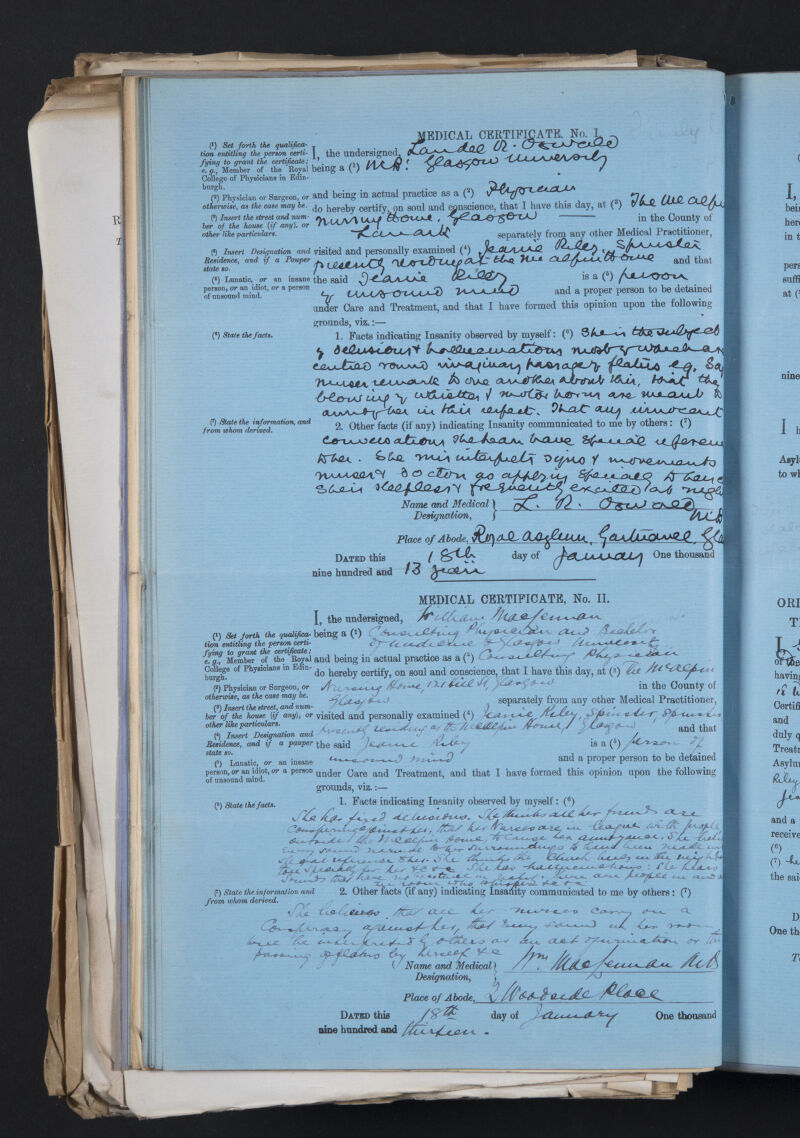 MEDICAL CERTIFICATE, No. I.
(¹) Set forth the qualifica-
tion entitling the person certi-
fying to grant the certificate;
e.g., Member of the Royal
College of Physicians in Edin-
burgh.
I, the undersigned, Landel R. Oswald
being a (¹) M.B. Glasgow University
(²) Physician or Surgeon, or
otherwise, as the case may be.
and being in actual practice as a (²) Physician
do hereby certify, on soul and conscience, that I have this day, at (³) The McAlpin
(³) Insert the street and num-
ber of the house (if any), or
other like particulars.
Nursing Home, Glasgow in the County of
Lanark separately from any other Medical Practitioner,
(⁴) Insert Designation and
Residence, and if a Pauper
state so.
visited and personally examined (⁴) Jeanie Riley, Spinster
presently residing at the McAlpin Home and that
(⁵) Lunatic, or an insane
person, or an idiot, or a person
of unsound mind.
the said Jeanie Riley is a (⁵) person
of unsound mind and a proper person to be detained
under Care and Treatment, and that I have formed this opinion upon the following
grounds, viz.:—
(⁶) State the facts.
1. Facts indicating Insanity observed by myself: (⁶) She is the subject
of delusions & hallucinations most of which are
centred round imaginary passage of flatus e.g. Say
nurses remark to one another about this, that the
blowing of whistles & motor horns are meant to
annoy her in this respect. That any innocent
(⁷) State the information, and
from whom derived.
2. Other facts (if any) indicating Insanity communicated to me by others: (⁷)
conversations she hears have special referen
to her. She misinterprets signs & movements
nurses & doctors as applying specially to her
She is sleepless & frequently excited at night
Name and Medical } L. R. Oswald
Designation, } M.B
Place of Abode, Royal Asylum, Gartnavel Gla
DATED this 18th day of January One thousand
nine hundred and 13 years
MEDICAL CERTIFICATE, No. II.
I, the undersigned, William MacLennan
(¹) Set forth the qualifica-
tion entitling the person certi-
fying to grant the certificate;
e.g., Member of the Royal
College of Physicians in Edin-
burgh.
being a (¹) Consulting Physician and Bachelor
of Medicine of Glasgow University
and being in actual practice as a (²) Consulting Physician
(²) Physician or Surgeon, or
otherwise, as the case may be.
do hereby certify, on soul and conscience, that I have this day, at (³) The McAlpin
Nursing Home, Hill St, Glasgow in the County of
(³) Insert the street, and num-
ber of the house (if any), or
other like particulars.
Glasgow separately from any other Medical Practitioner,
visited and personally examined (⁴) Jeanie Riley, Spinster,
(⁴) Insert Designation and
Residence, and if a pauper
state so.
presently residing at the McAlpin Home, Glasgow and that
the said Jeanie Riley is a (⁵) person of
(⁵) Lunatic, or an insane
person, or an idiot, or a person
of unsound mind.
unsound mind and a proper person to be detained
under Care and Treatment, and that I have formed this opinion upon the following
grounds, viz.:—
(⁶) State the facts.
1. Facts indicating Insanity observed by myself: (⁶)
She has fixed delusions. She thinks all her friends are
conspiring against her, that her Nurses are in league with people
outside the McAlpin Home to cause her annoyance. She
every sound made in her surroundings to have been made
special reference to her. She thinks the Church bells in the neighbo
toll specially for her &c &c. She has hallucinations. She hears
sounds that have no existence there are people in and
room who whisper &c &c
(⁷) State the information and
from whom derived.
2. Other facts (if any) indicating Insanity communicated to me by others: (⁷)
She believes that all her nurses carry on a
Conspiracy against her, that every sound in her room
will be interpreted by others as an act of or the
passing of flatus by herself &c
Name and Medical } Wm. MacLennan M.B
Designation, }
Place of Abode, 2 Woodside Place
DATED this 18th day of January One thousand
nine hundred and thirteen.